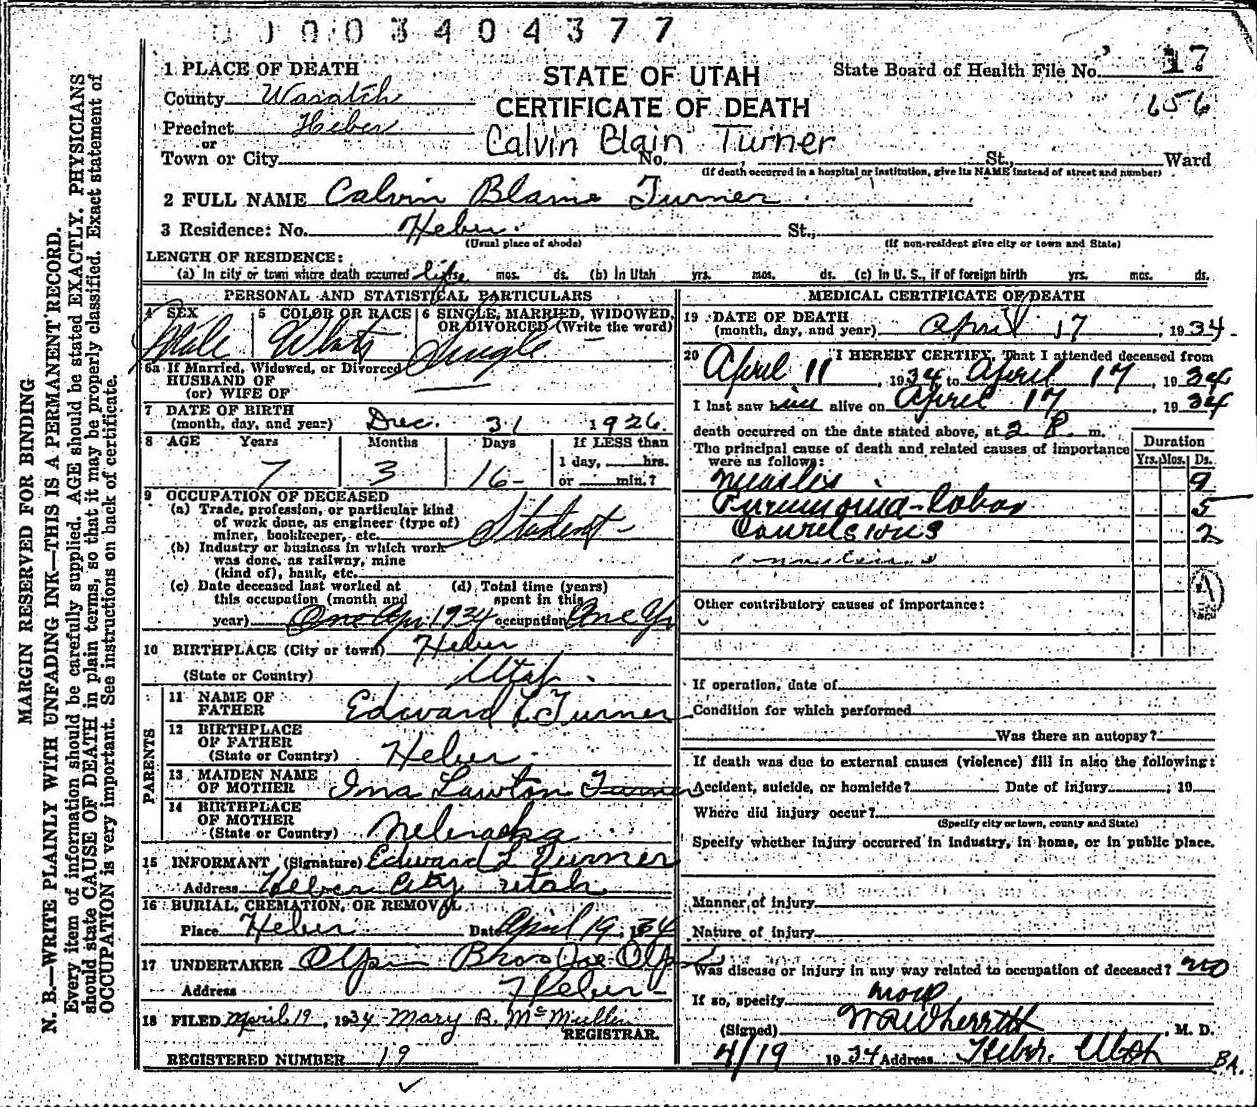 0003404377
1 PLACE OF DEATH
STATE OF UTAH
State Board of Health File No. 17
County Wasatch
CERTIFICATE OF DEATH
656
Precinct Heber
or
Calvin Blain Turner
Town or City No. St., Ward
(If death occurred in a hospital or institution, give its NAME instead of street and number)
2 FULL NAME Calvin Blaine Turner
3 Residence: No. Heber St.,
(Usual place of abode) (If non-resident give city or town and State)
LENGTH OF RESIDENCE:
(a) In city or town where death occurred life mos. ds. (b) In Utah yrs. mos. ds. (c) In U. S., if of foreign birth yrs. mos. ds.
PERSONAL AND STATISTICAL PARTICULARS
4 SEX 5 COLOR OR RACE 6 SINGLE, MARRIED, WIDOWED, OR DIVORCED (Write the word)
Male White Single
6a If Married, Widowed, or Divorced
HUSBAND OF
(or) WIFE OF
7 DATE OF BIRTH
(month, day, and year) Dec. 31 1926
8 AGE Years Months Days If LESS than
7 3 16 1 day, hrs.
or min.?
9 OCCUPATION OF DECEASED
(a) Trade, profession, or particular kind
of work done, as engineer (type of)
miner, bookkeeper, etc. Student
(b) Industry or business in which work
was done, as railway, mine
(kind of), bank, etc.
(c) Date deceased last worked at (d) Total time (years)
this occupation (month and spent in this
year) Apr. 1934 occupation One Yr
10 BIRTHPLACE (City or town) Heber
(State or Country) Utah
PARENTS
11 NAME OF
FATHER Edward L Turner
12 BIRTHPLACE
OF FATHER Heber
(State or Country)
13 MAIDEN NAME
OF MOTHER Ina Lawton Turner
14 BIRTHPLACE
OF MOTHER
(State or Country) Nebraska
15 INFORMANT (Signature) Edward L Turner
Address Heber City Utah
16 BURIAL, CREMATION, OR REMOVAL
Place Heber Date April 19, 1934
17 UNDERTAKER Olpin Bros Joe Olpin
Address Heber
18 FILED April 19, 1934 Mary B. McMullin
REGISTRAR.
REGISTERED NUMBER 19
MEDICAL CERTIFICATE OF DEATH
19 DATE OF DEATH
(month, day, and year) April 17, 1934
20 I HEREBY CERTIFY, That I attended deceased from
April 11, 1934 to April 17, 1934
I last saw him alive on April 17, 1934
death occurred on the date stated above, at 2 P. m.
The principal cause of death and related causes of importance
were as follows:
Duration
Yrs. Mos. Ds.
Measles 9
Pneumonia-lobar 5
Convulsions 2
Other contributory causes of importance:
If operation, date of
Condition for which performed
Was there an autopsy?
If death was due to external causes (violence) fill in also the following:
Accident, suicide, or homicide? Date of injury, 19
Where did injury occur?
(Specify city or town, county and State)
Specify whether injury occurred in industry, in home, or in public place.
Manner of injury
Nature of injury
Was disease or injury in any way related to occupation of deceased? no
If so, specify
(Signed) , M. D.
4/19 1934 Address Heber, Utah
B.A.
MARGIN RESERVED FOR BINDING
N. B.—WRITE PLAINLY WITH UNFADING INK—THIS IS A PERMANENT RECORD.
Every item of information should be carefully supplied. AGE should be stated EXACTLY. PHYSICIANS
should state CAUSE OF DEATH in plain terms, so that it may be properly classified. Exact statement of
OCCUPATION is very important. See instructions on back of certificate.